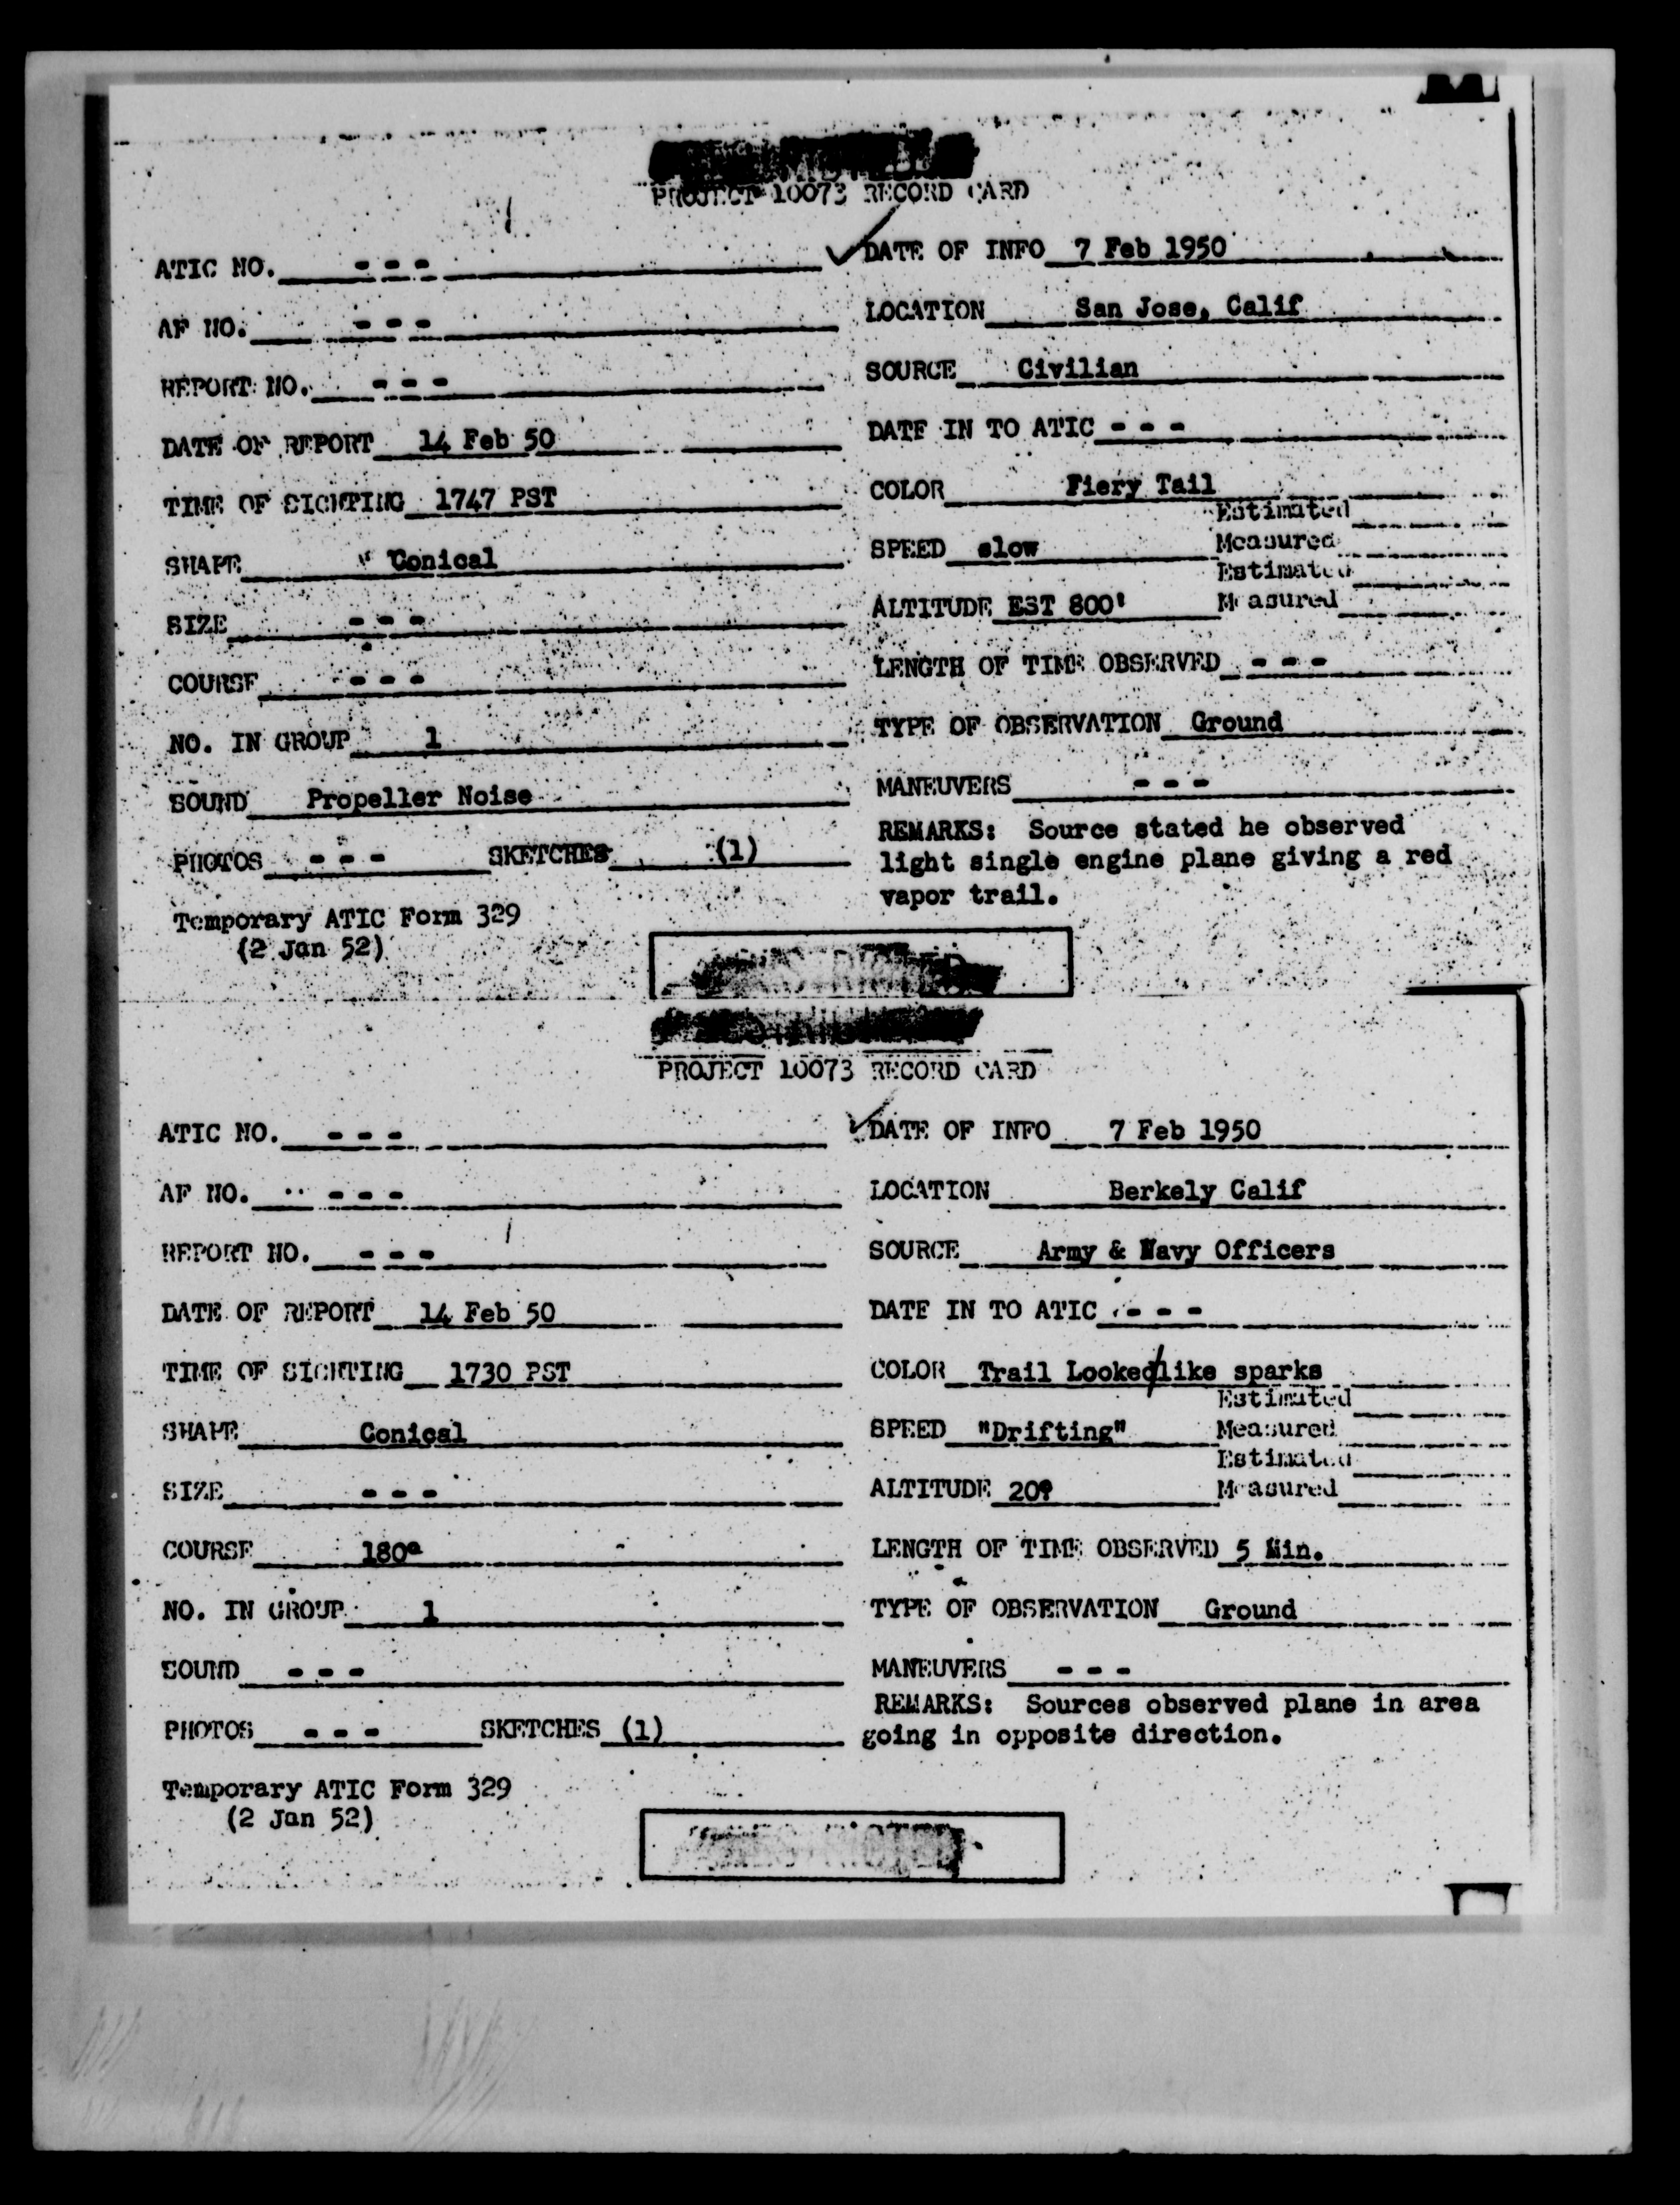 PROJECT 10073 RECORD CARD
ATIC NO. - - -
AF NO. - - -
REPORT NO. - - -
DATE OF REPORT 14 Feb 50
TIME OF SIGHTING 1747 PST
SHAPE Conical
SIZE - - -
COURSE - - -
NO. IN GROUP 1
SOUND Propeller Noise
PHOTOS - - - SKETCHES (1)
Temporary ATIC Form 329
(2 Jan 52)
DATE OF INFO 7 Feb 1950
LOCATION San Jose, Calif
SOURCE Civilian
DATE IN TO ATIC - - -
COLOR Fiery Tail
Estimated
SPEED slow Measured
Estimated
ALTITUDE EST 800' Measured
LENGTH OF TIME OBSERVED - - -
TYPE OF OBSERVATION Ground
MANEUVERS - - -
REMARKS: Source stated he observed
light single engine plane giving a red
vapor trail.
PROJECT 10073 RECORD CARD
ATIC NO. - - -
AF NO. - - -
REPORT NO. - - -
DATE OF REPORT 14 Feb 50
TIME OF SIGHTING 1730 PST
SHAPE Conical
SIZE - - -
COURSE 180°
NO. IN GROUP 1
SOUND - - -
PHOTOS - - - SKETCHES (1)
Temporary ATIC Form 329
(2 Jan 52)
DATE OF INFO 7 Feb 1950
LOCATION Berkely Calif
SOURCE Army & Navy Officers
DATE IN TO ATIC - - -
COLOR Trail Looked/like sparks
Estimated
SPEED "Drifting" Measured
Estimated
ALTITUDE 20° Measured
LENGTH OF TIME OBSERVED 5 Min.
TYPE OF OBSERVATION Ground
MANEUVERS - - -
REMARKS: Sources observed plane in area
going in opposite direction.